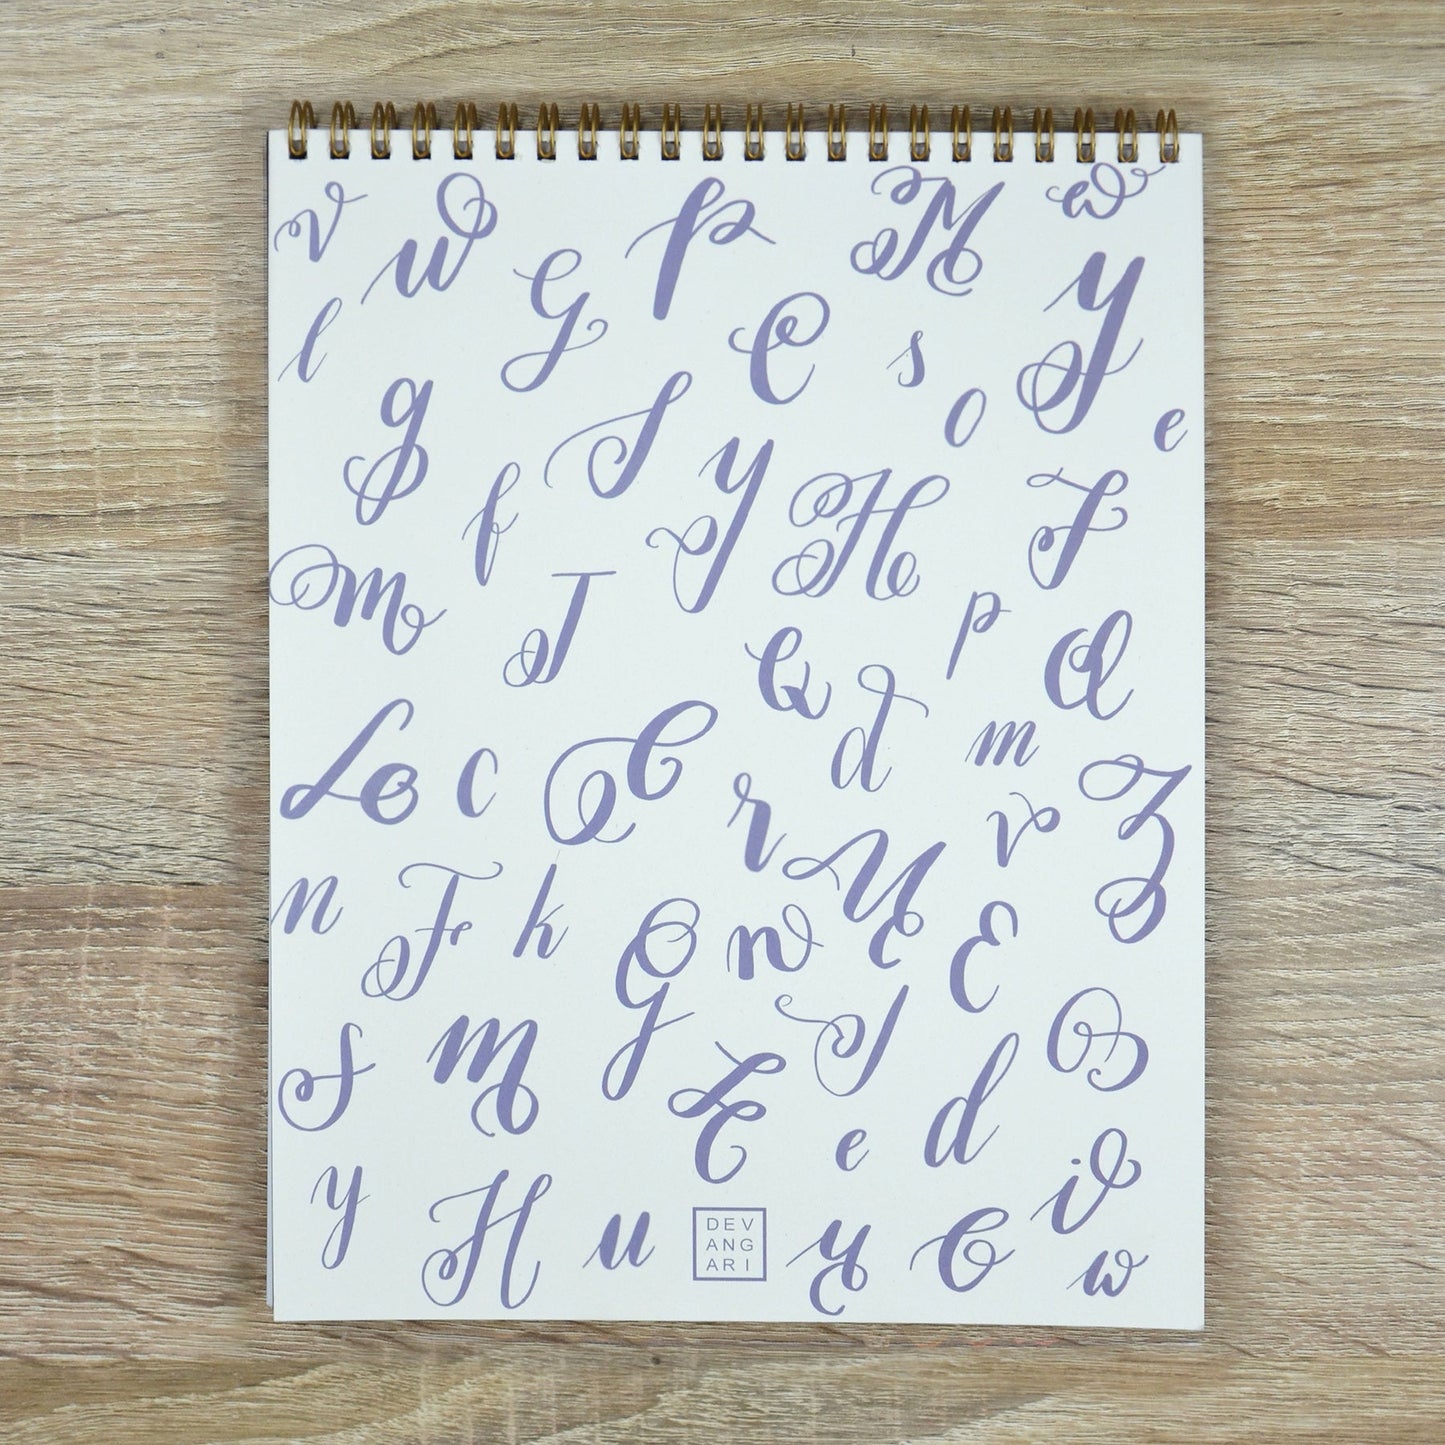 v w G P M w
l C s Y
g S o e
f y H F
m J p
Q d a
L o c C r m v Z
n F k G n U E
S m J B
E e d
y H u y C i w
DEV
ANG
ARI